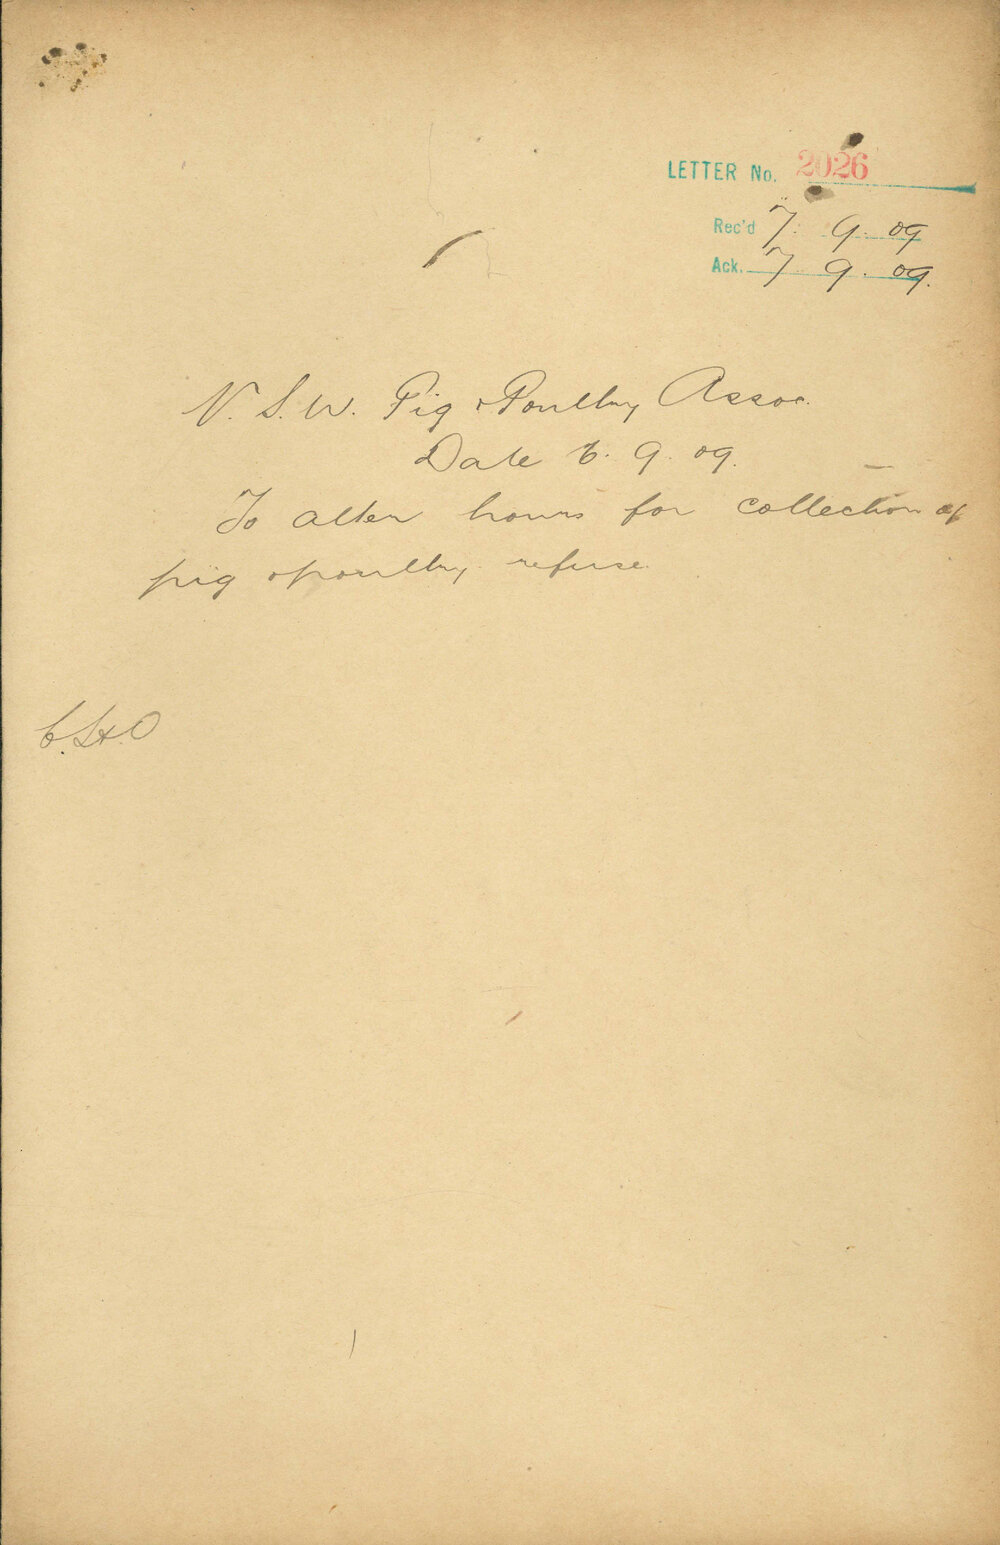 LETTER No. 2026
Rec'd 7. 9. 09
Ack. 7 9. 09.
N. S. W. Pig & Poultry Assoc.
Date 6. 9. 09.
To alter hours for collection of
pig & poultry refuse.
C.H.O